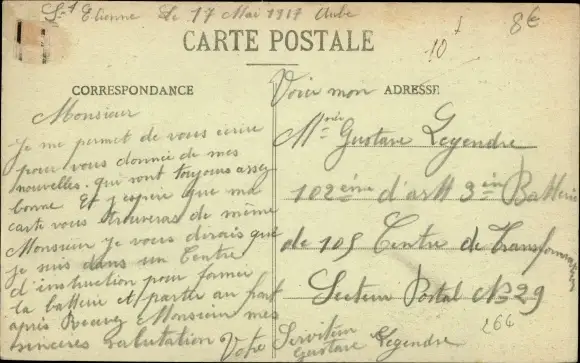 St Etienne Le 17 Mai 1917 Aube
CARTE POSTALE
10
8€
CORRESPONDANCE
Voici mon ADRESSE
Monsieur
Je me permet de vous écrire
pour vous donnée de mes
nouvelles. qui vont toujours assez
bonne. Et j'espère que ma
carte vous trouveras de même
Monsieur Je vous dirais que
je suis dans un Centre
d'instruction pour former
la batterie et partir au front
après Recevez Monsieur mes
sincères salutation Votre
Serviteur
Gustave Legendre
Gustave Legendre
102ème d'artt 3ème Batterie
de 105 Centre de
Secteur Postal No 29
266